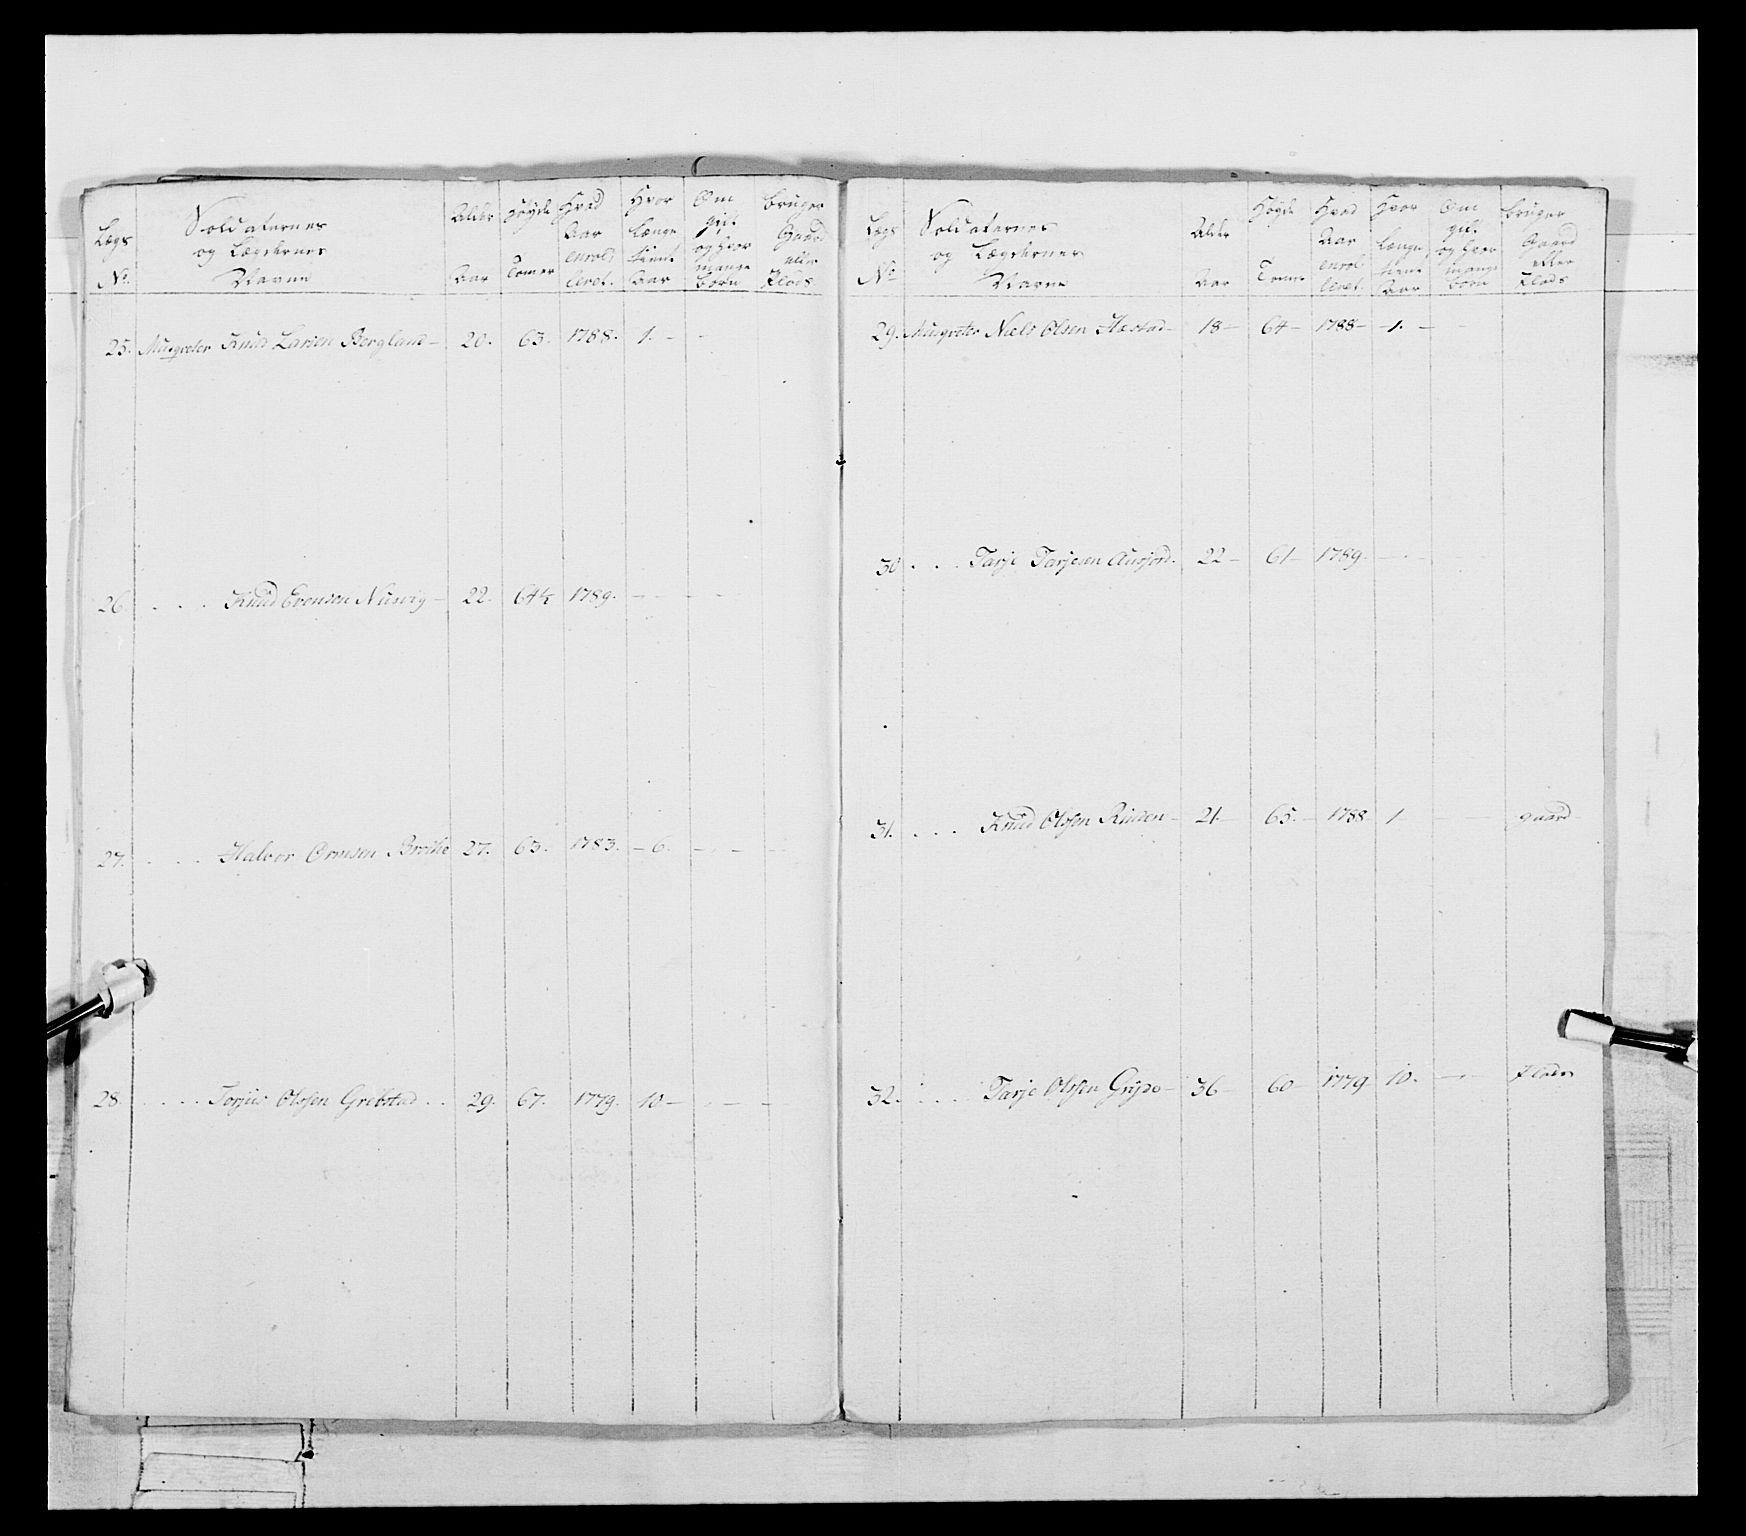 Lægs
No.
Soldaternes
og Lægdernes
Navne
Alder
Aar
Höyde
Tomer
Hvad
Aar
enrol
leret.
Hvor
længe
tient
Aar
Om
gift
og hvor
mange
börn
bruger
Gaard
eller
Plads
25. Musqveter Knud Larsen Bergland – 20. 63. 1788. 1. – –
26 . . . Knud Evensen 22. 64½ 1789. – –
27. . . . Halvor Ormsen 27. 63. 1783. – 6. – – –
28. . . . . Olssen Grebstad . . 29. 67. 1779. 10 – – –
Lægs
No
Soldaternes
og Lægdernes
Navne
Alder
Aar
Höyde
Tomer
Hvad
Aar
enrol
leret.
Hvor
længe
tient
Aar
Om
gift
og hvor
mange
börn
bruger
Gaard
eller
Plads
29. Musqveter Niels Olsen Hæstad – 18 – 64 – 1788 – 1. –
30 . . . Tarje Tarjesen 22 – 61 – 1789. –
31. . . . Knud Olssen 21 – 65. – 1788 1 gaard
32. . . . Tarje Olssen 36 60 – 1779 10. – Plads